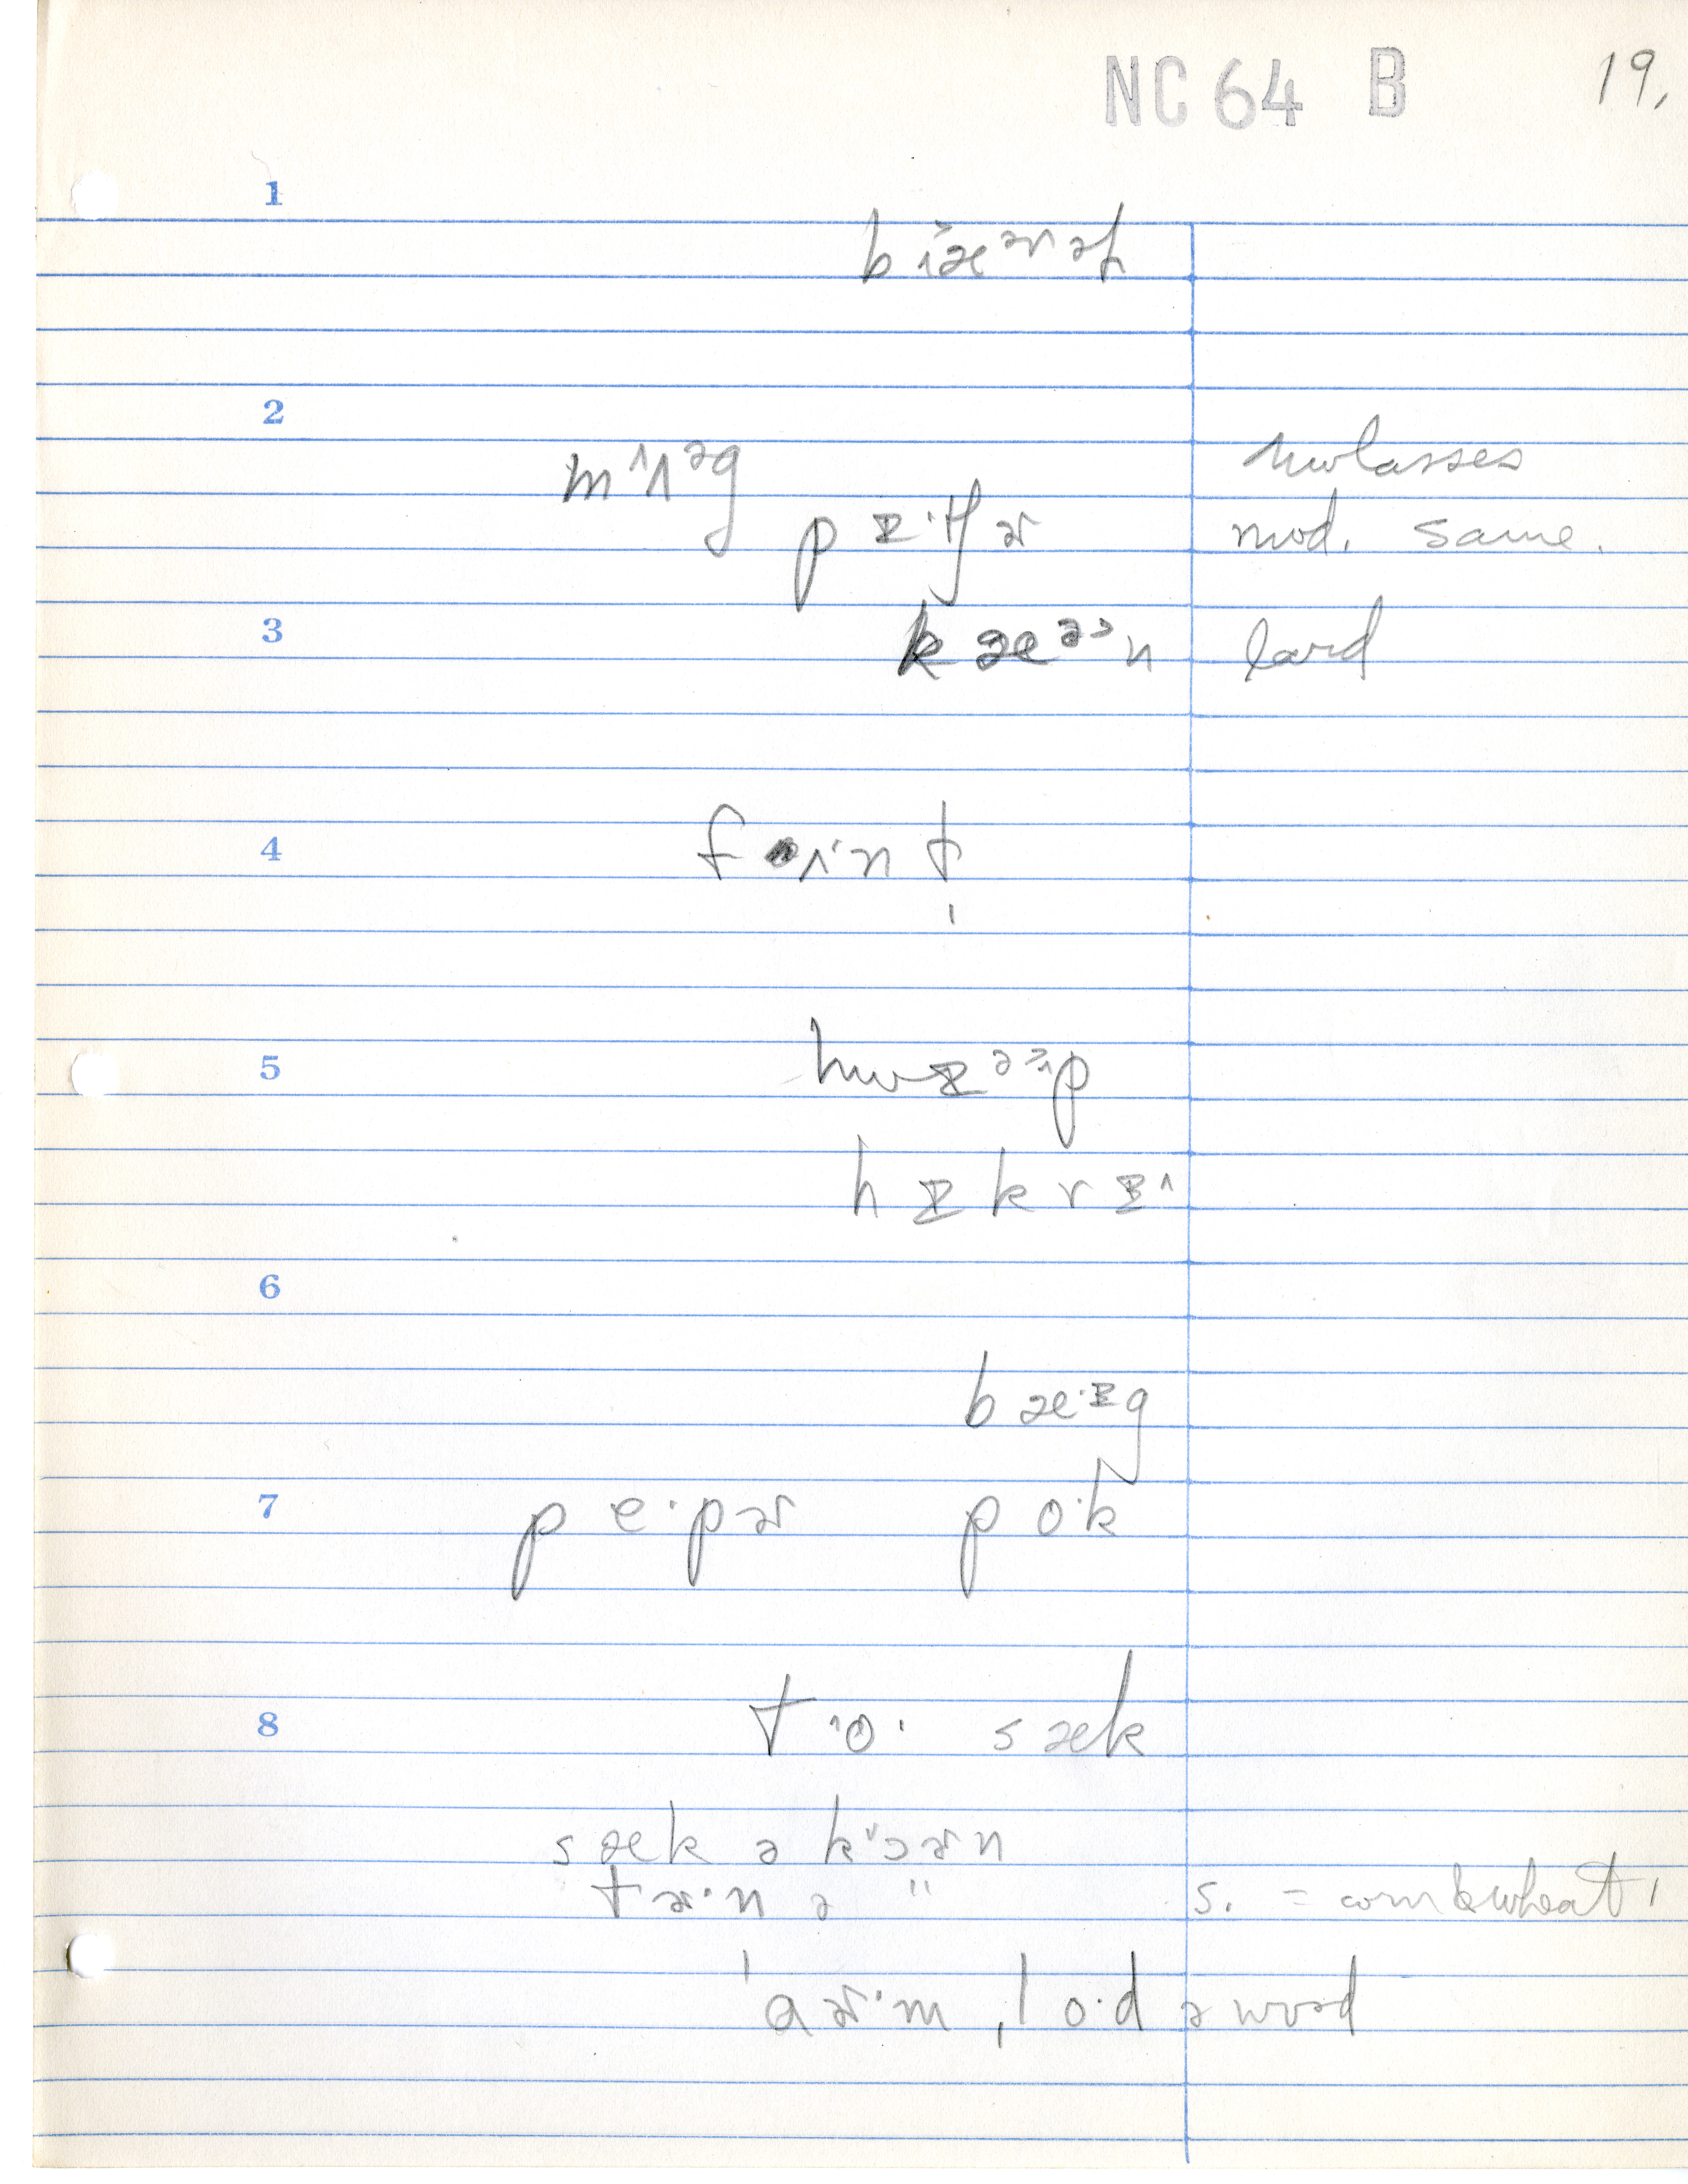 NC 64 B 19.
1
bɨæʳəɫ
2
mʌᵊg molasses
pɪ·tʃɚ mod. same.
3 kæᵊn lard
4 fʌ·nɫ
5
hwɪᵊᵊp
hɪkrɪ
6
bæ·ɪg
7 pe·pɚ po·k
8 to· sæk
sæk ə kɔɚn
tɚ·n ə " s. = corn & wheat
ˈaɚ·m ˌlo·d ə wʊəd